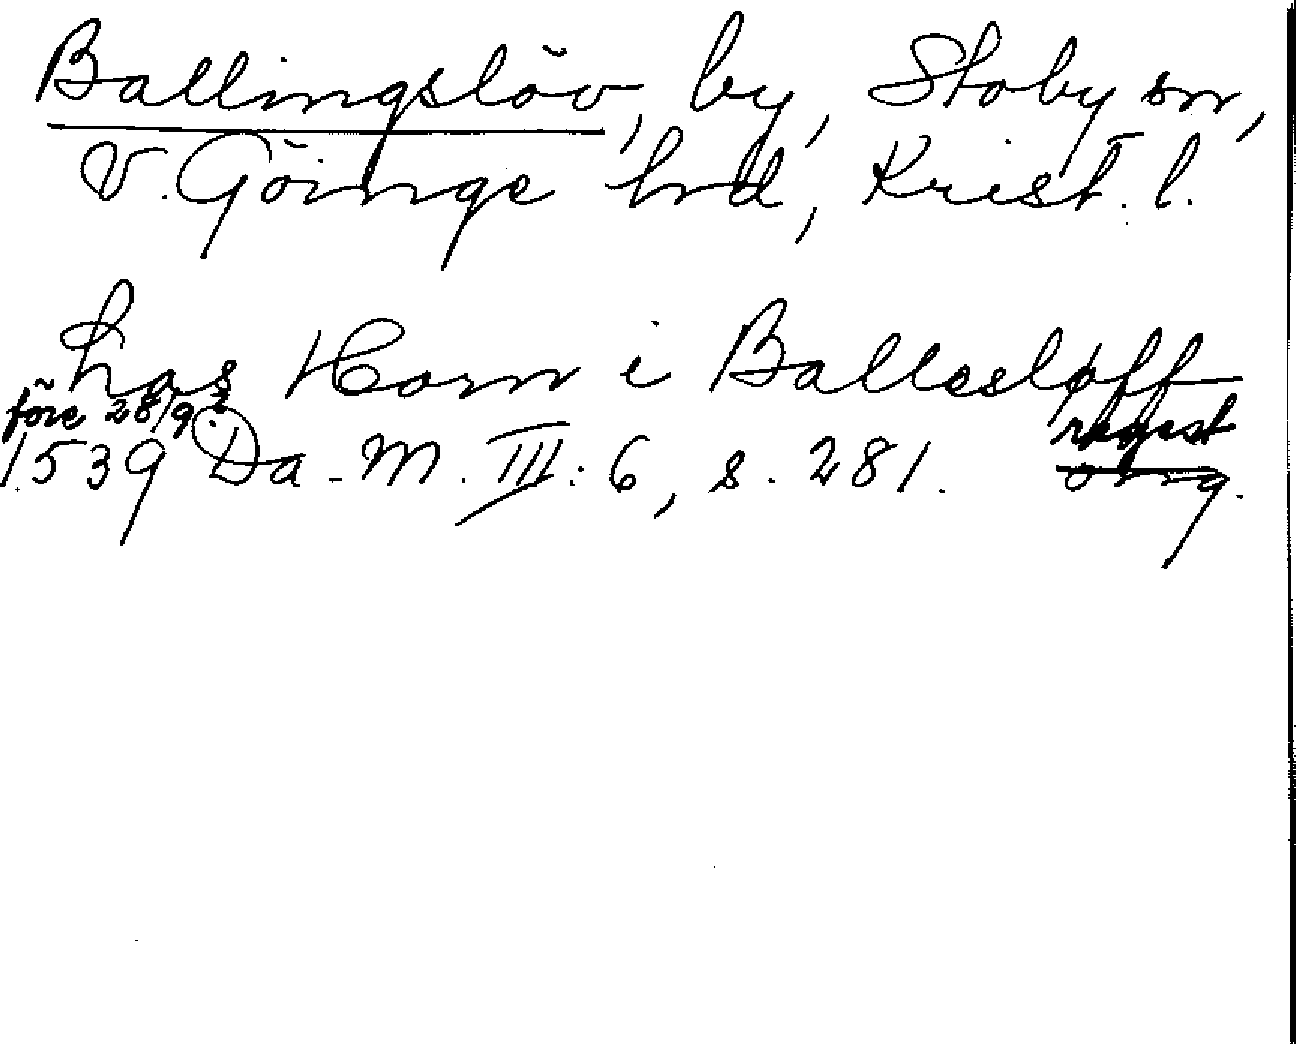 Ballingslöv, by, Stoby sn,
V. Göinge hrd, Krist. l.
has Horn i Ballesløff
före 28/9
1539 Da. M. III: 6, s. 281. regist
orig.